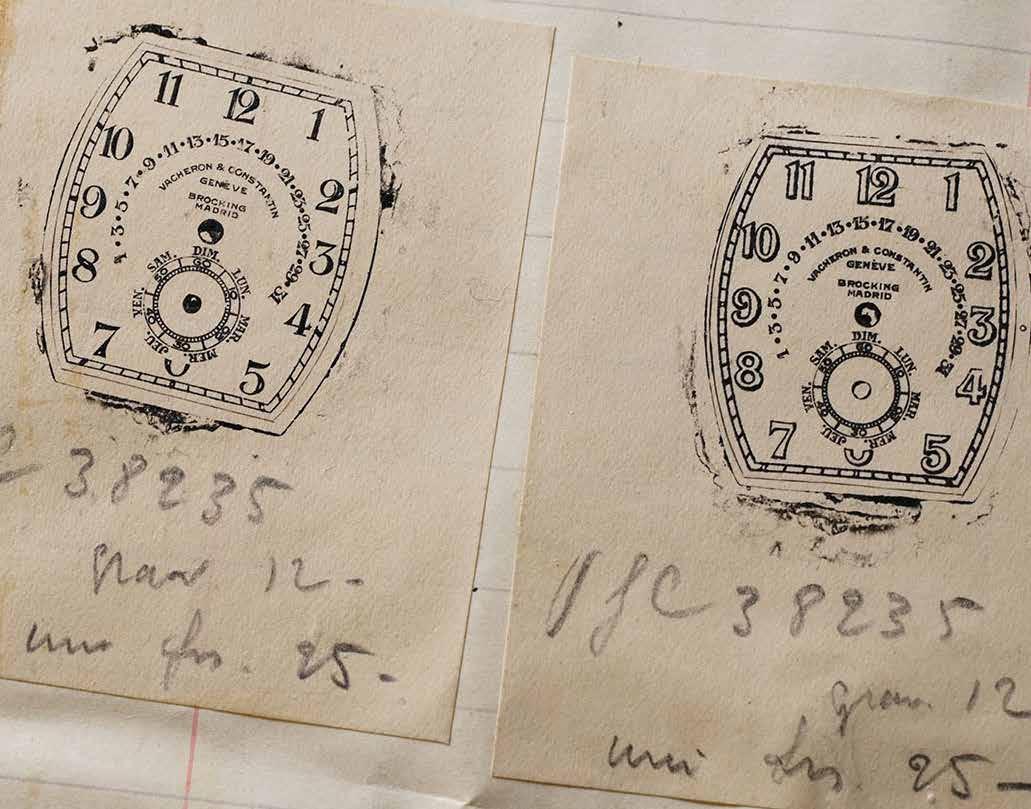 11 12 1
10 2
9 3
8 4
7 5
1•3•5•7•9•11•13•15•17•19•21•23•25•27•29•31
VACHERON & CONSTANTIN
GENÈVE
BROCKING
MADRID
DIM. LUN. MAR. MER. JEU. VEN. SAM.
60 10 20 30 40 50
38235
12-
frs. 25-
11 12 1
10 2
9 3
8 4
7 5
1•3•5•7•9•11•13•15•17•19•21•23•25•27•29•31
VACHERON & CONSTANTIN
GENÈVE
BROCKING
MADRID
DIM. LUN. MAR. MER. JEU. VEN. SAM.
60 10 20 30 40 50
38235
grav. 12
uni frs. 25-